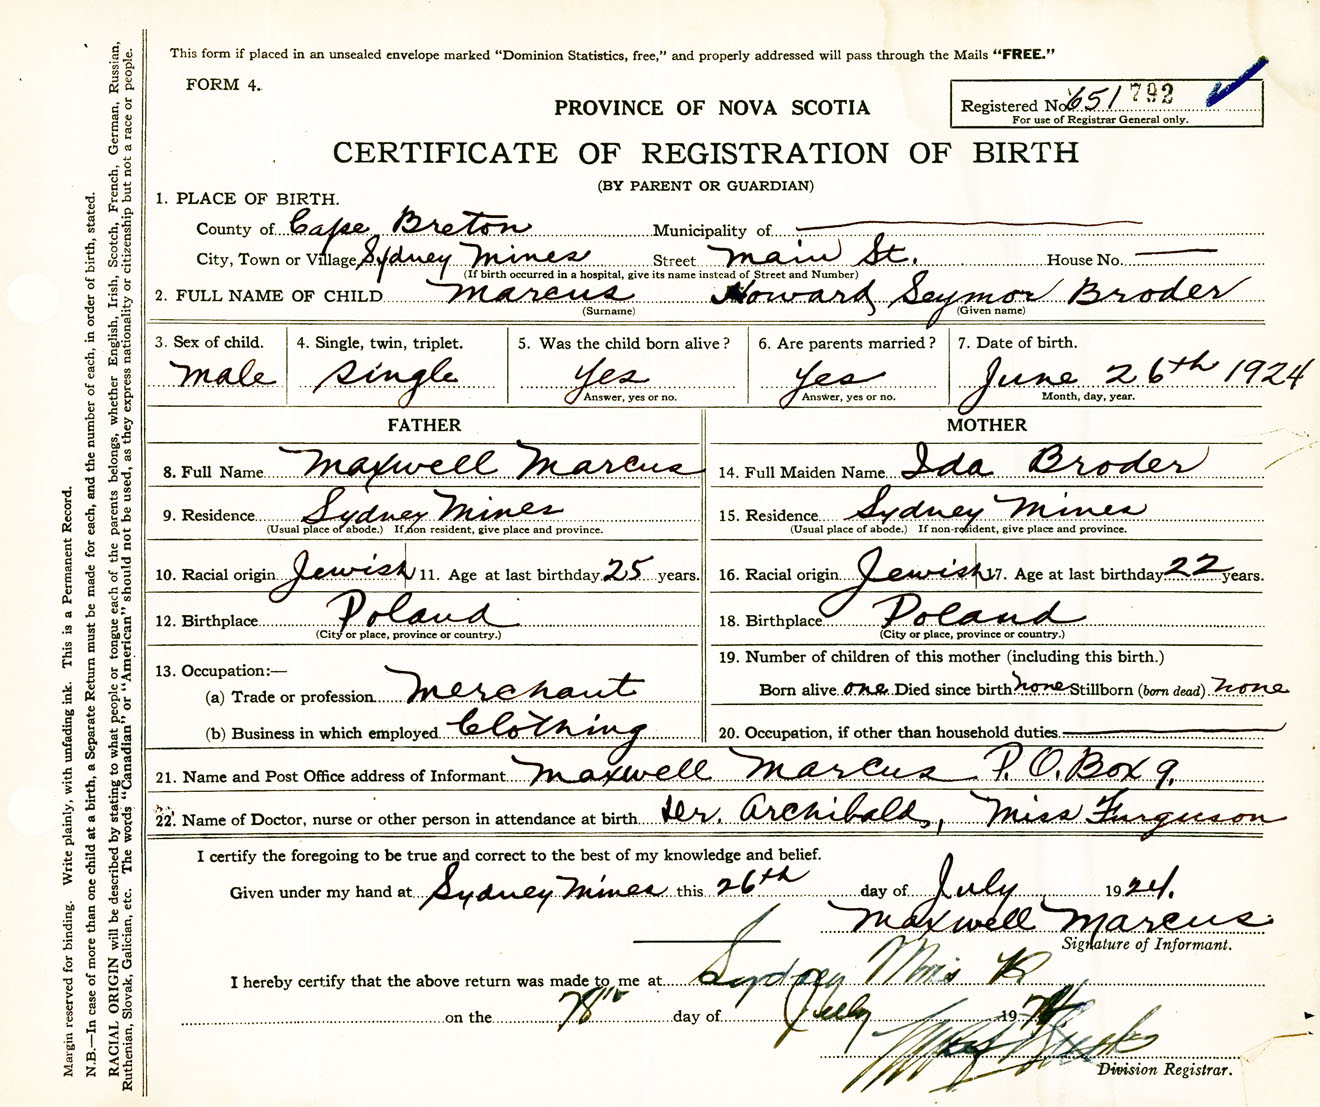 This form if placed in an unsealed envelope marked “Dominion Statistics, free,” and properly addressed will pass through the Mails “FREE.”
FORM 4.
Registered No. 651 792
For use of Registrar General only.
PROVINCE OF NOVA SCOTIA
CERTIFICATE OF REGISTRATION OF BIRTH
(BY PARENT OR GUARDIAN)
1. PLACE OF BIRTH.
County of Cape Breton Municipality of
City, Town or Village Sydney Mines Street Main St. House No.
(If birth occurred in a hospital, give its name instead of Street and Number)
2. FULL NAME OF CHILD Marcus Howard Seymor Broder
(Surname) (Given name)
3. Sex of child. 4. Single, twin, triplet. 5. Was the child born alive? 6. Are parents married? 7. Date of birth.
Male Single Yes Yes June 26th 1924
Answer, yes or no. Answer, yes or no. Month, day, year.
FATHER
8. Full Name Maxwell Marcus
9. Residence Sydney Mines
(Usual place of abode.) If non resident, give place and province.
10. Racial origin Jewish 11. Age at last birthday 25 years.
12. Birthplace Poland
(City or place, province or country.)
13. Occupation:—
(a) Trade or profession Merchant
(b) Business in which employed Clothing
MOTHER
14. Full Maiden Name Ida Broder
15. Residence Sydney Mines
(Usual place of abode.) If non-resident, give place and province.
16. Racial origin Jewish 17. Age at last birthday 22 years.
18. Birthplace Poland
(City or place, province or country.)
19. Number of children of this mother (including this birth.)
Born alive one Died since birth none Stillborn (born dead) none
20. Occupation, if other than household duties
21. Name and Post Office address of Informant Maxwell Marcus P. O. Box 9.
22. Name of Doctor, nurse or other person in attendance at birth Dr. Archibald, Miss Furguson
I certify the foregoing to be true and correct to the best of my knowledge and belief.
Given under my hand at Sydney Mines this 26th day of July 1924.
Maxwell Marcus
Signature of Informant.
I hereby certify that the above return was made to me at Sydney
on the day of July 19
Division Registrar.
Margin reserved for binding. Write plainly, with unfading ink. This is a Permanent Record.
N.B.—In case of more than one child at a birth, a Separate Return must be made for each, and the number of each, in order of birth, stated.
RACIAL ORIGIN will be described by stating to what people or tongue each of the parents belongs, whether English, Irish, Scotch, French, German, Russian,
Ruthenian, Slovak, Galician, etc. The words “Canadian” or “American” should not be used, as they express nationality or citizenship but not a race or people.